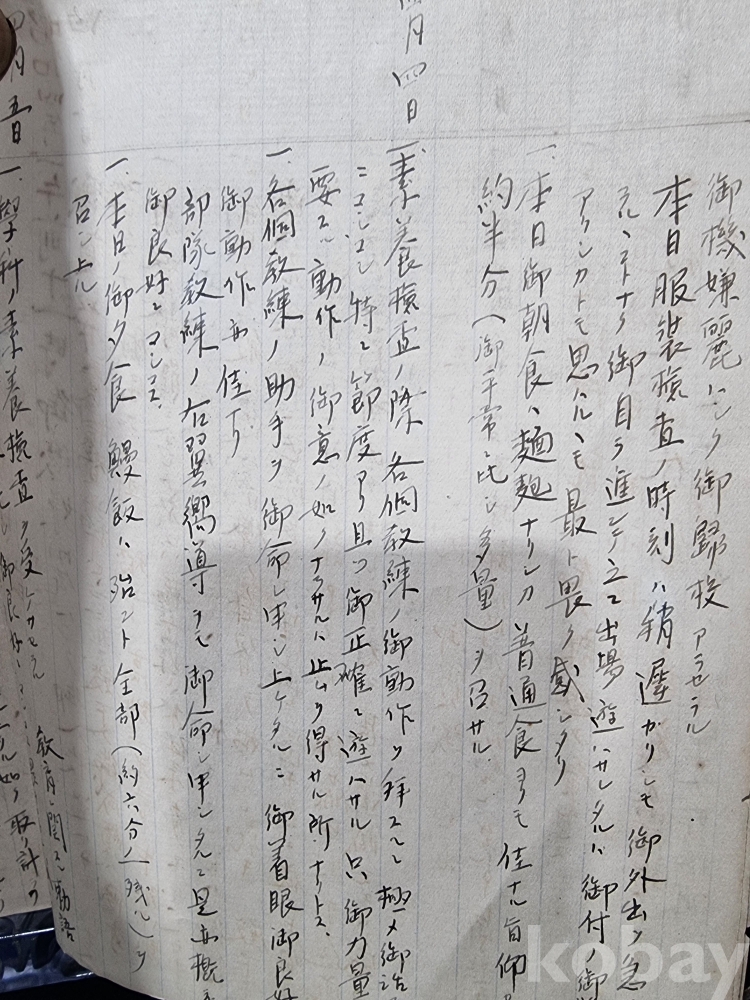 御機嫌麗ハシク御歸校アラセラル
本日服装檢査ノ時刻ハ稍遅カリシモ御外出ヲ急
御自ラ進ンデ立ニ出場遊ハサレタルハ御付ノ御
思ハルルモ最ト畏ク感シタリ
一、本日御朝食ハ麺麭ナリシカ普通食ヨリモ佳ナル旨仰
約半分(御平常ニ比シ多量)ヲ召サル
四月四日
一、素養檢査ノ際各個教練ノ御動作ヲ拜スルニ極メ御
特ニ節度アリ且ツ御正確ニ遊ハサル只御力量
要スル動作ノ御意ノ如クナラサルハ止ムヲ得サル所ナリトス
一、各個教練ノ助手ヲ御命シ申シ上ケタルニ御着眼御良好
御動作亦佳ナリ
部隊教練ノ右翼嚮導ヲモ御命シ申シタルニ是亦概
御良好ニマシマス
一、本日ノ御夕食鰻飯ハ殆ント全部(約六分ノ一残シ)ヲ
召シ上ル
四月五日
一、學科ノ素養檢査ヲ受ケサセラル
教育ニ関スル勅語
kobay